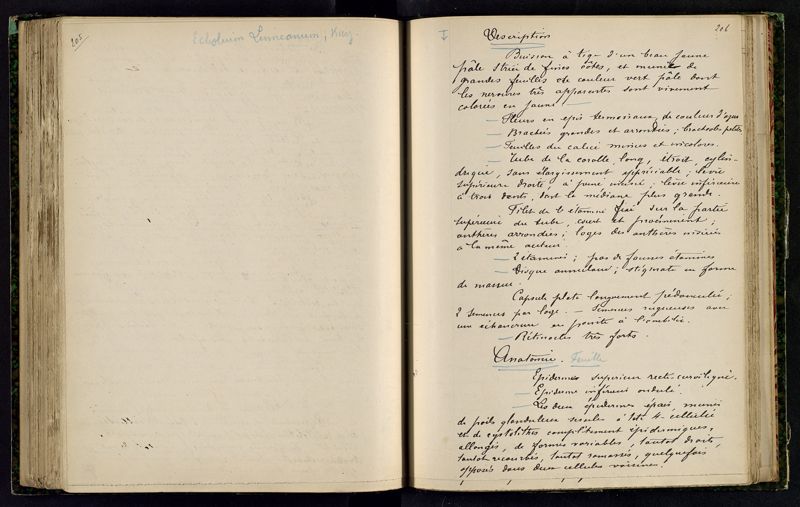 205
Ecbolium Linneanum, Kurz.
I
206
Description
Buisson à tige d'un beau jaune
pâle striée de fines côtes, et munie de
grandes feuilles de couleur vert pâle dont
les nervures très apparentes sont vivement
colorées en jaune —
— Fleurs en épis terminaux, de couleur d'azur
— Bractées grandes et arrondies; bractéoles petites
— Feuilles du calice minces et incolores.
— Tube de la corolle long, étroit, cylin-
drique, sans élargissement appréciable; lèvre
supérieure droite, à peine incisée; lèvre inférieure
à trois dents, dont la médiane plus grande.
Filet de l'étamine fixé sur la partie
supérieure du tube, court et proéminent;
anthères arrondies; loges des anthères insérées
à la même hauteur.
— 2 étamines; pas de fausses étamines
— Disque annulaire; stigmate en forme
de massue.
Capsule plate longuement pédonculée;
2 semences par loge. — Semences rugueuses avec
une échancrure en pointe à l'ombilic.
— Rétinacles très forts.
Anatomie. Feuille
Epiderme supérieur recticurviligne.
— Epiderme inférieur ondulé.
— Les deux épidermes épais, munis
de poils glanduleux sessiles à tête 4-cellulée
et de cystolithes complètement épidermiques,
allongés, de formes variables, tantôt droits,
tantôt recourbés, tantôt ramassés, quelquefois
opposés dans deux cellules voisines.